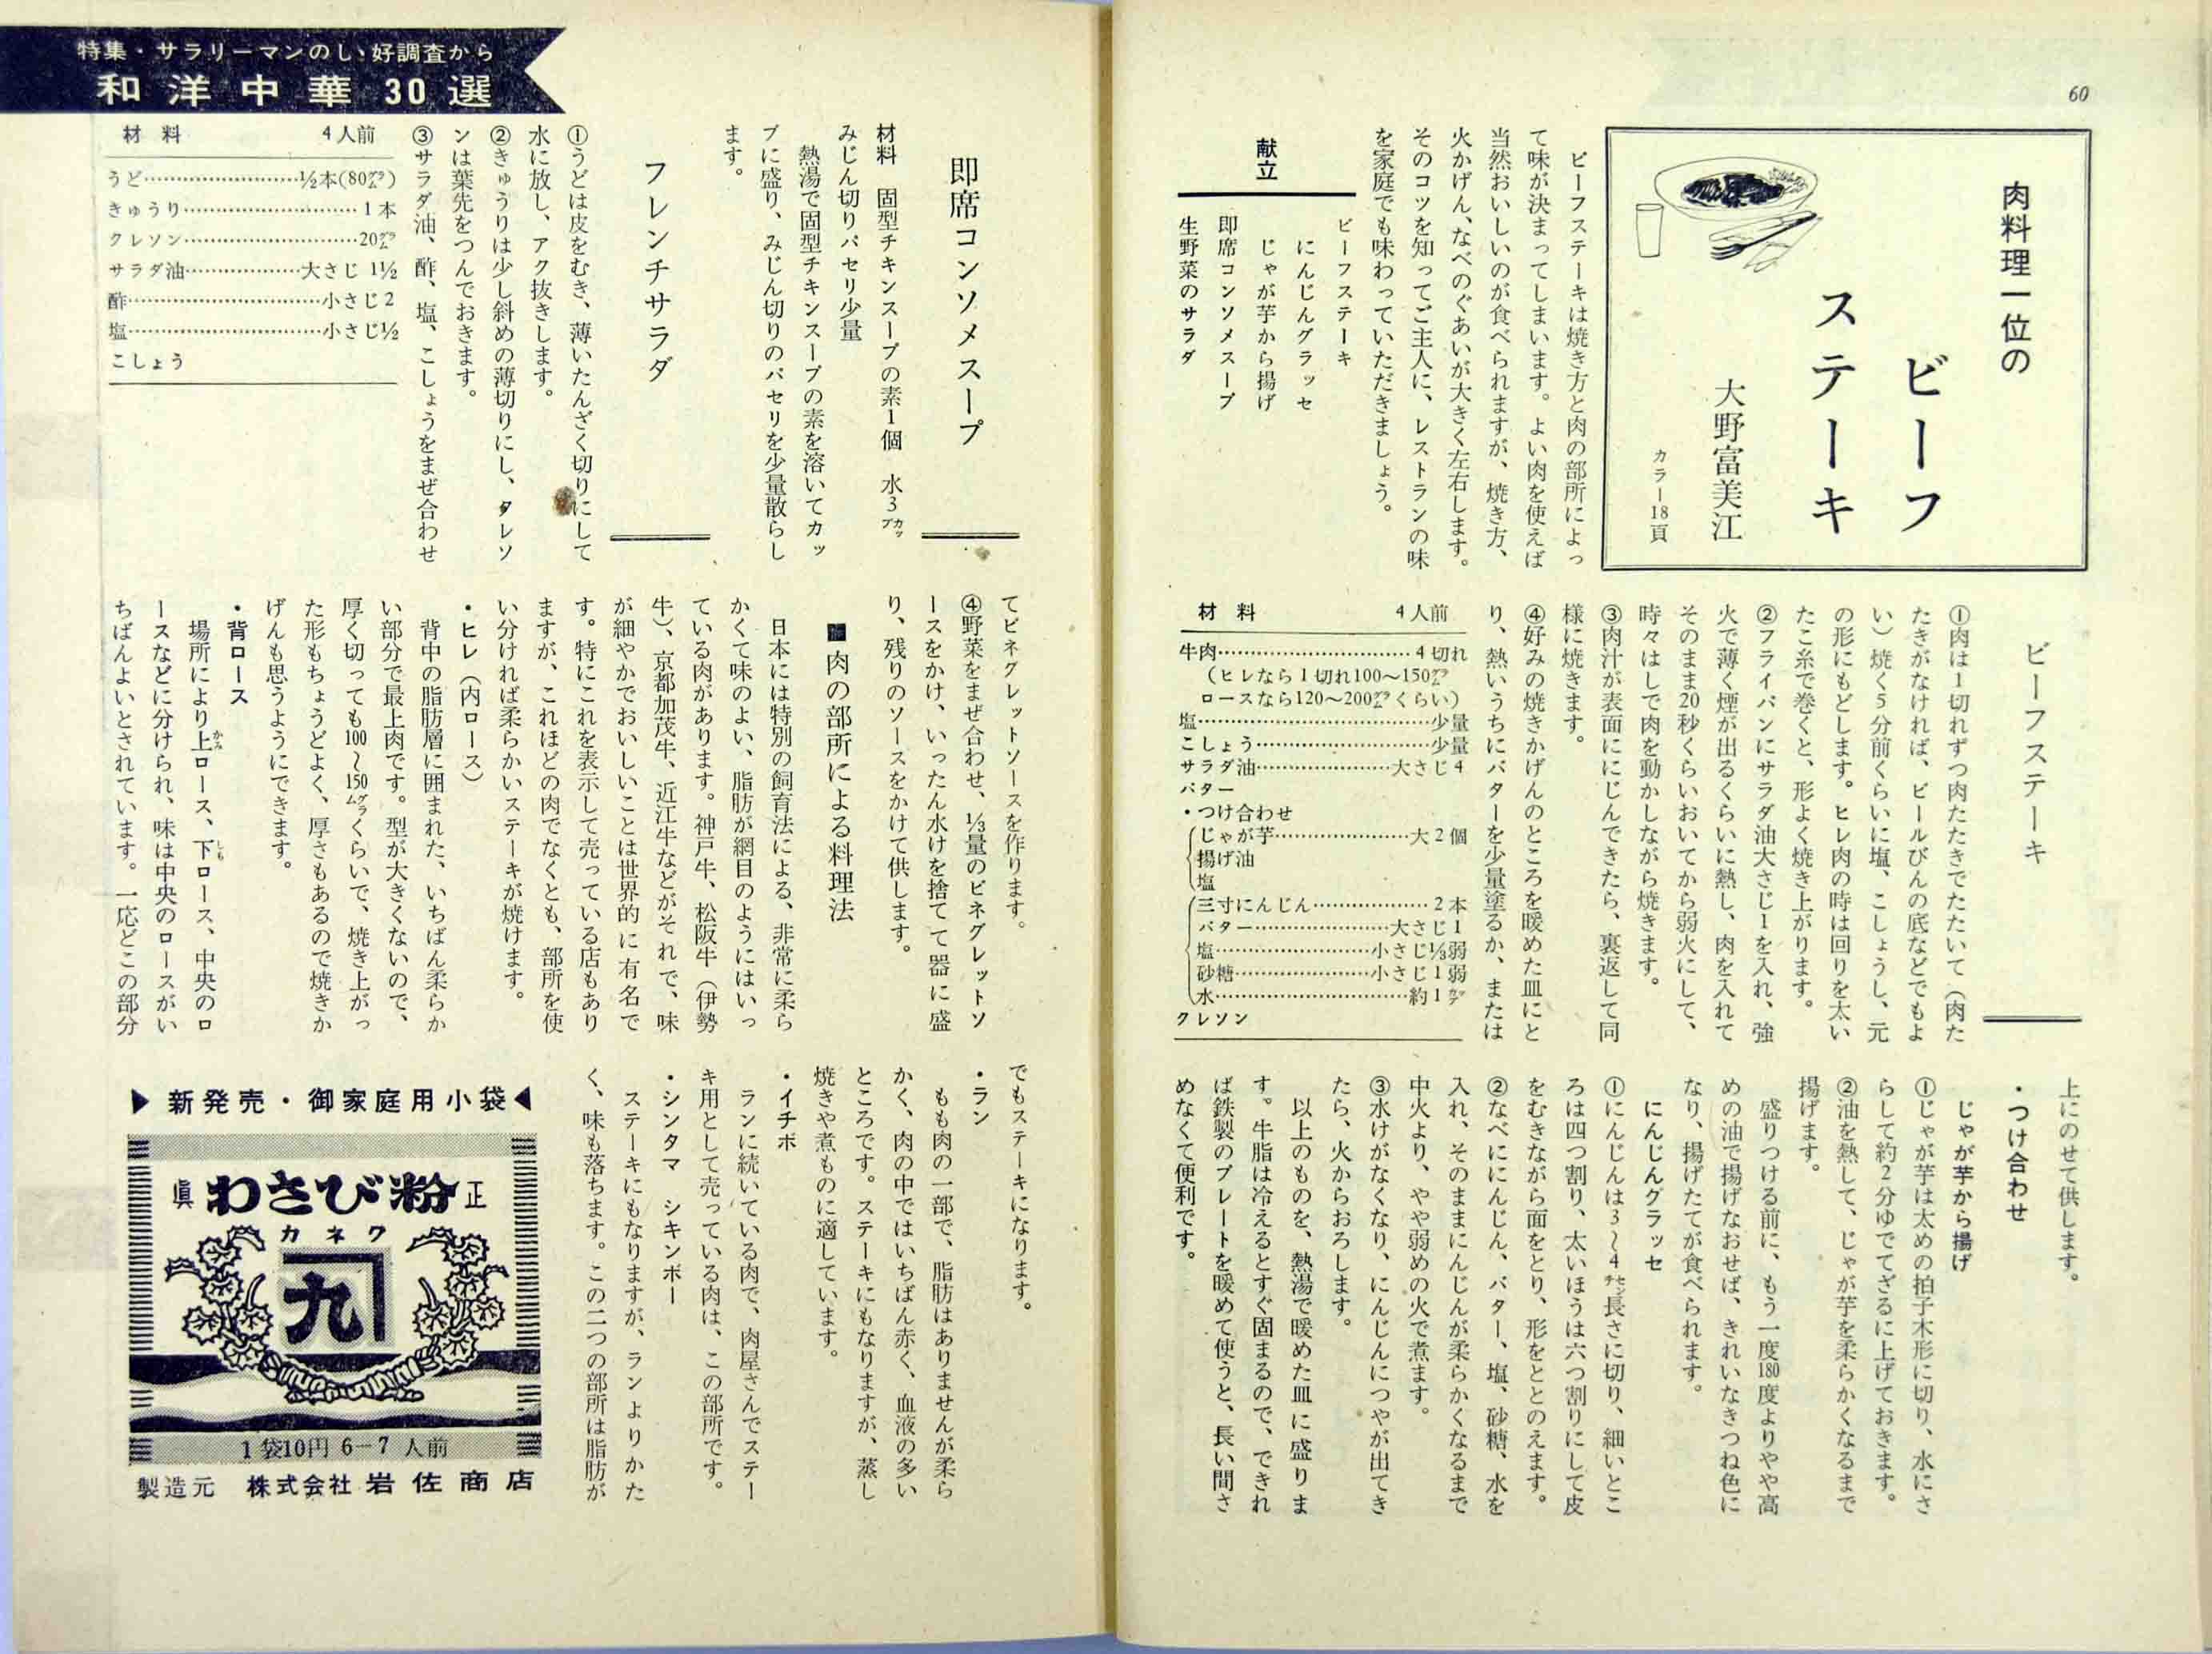 60
肉料理一位の
ビーフ
ステーキ
大野富美江
カラー18頁
ビーフステーキは焼き方と肉の部所によっ
て味が決まってしまいます。よい肉を使えば
当然おいしいのが食べられますが、焼き方、
火かげん、なべのぐあいが大きく左右します。
そのコツを知ってご主人に、レストランの味
を家庭でも味わっていただきましょう。
献立
ビーフステーキ
にんじんグラッセ
じゃが芋から揚げ
即席コンソメスープ
生野菜のサラダ
ビーフステーキ
①肉は1切れずつ肉たたきでたたいて（肉た
たきがなければ、ビールびんの底などでもよ
い）焼く5分前くらいに塩、こしょうし、元
の形にもどします。ヒレ肉の時は回りを太い
たこ糸で巻くと、形よく焼き上がります。
②フライパンにサラダ油大さじ1を入れ、強
火で薄く煙が出るくらいに熱し、肉を入れて
そのまま20秒くらいおいてから弱火にして、
時々はしで肉を動かしながら焼きます。
③肉汁が表面ににじんできたら、裏返して同
様に焼きます。
④好みの焼きかげんのところを暖めた皿にと
り、熱いうちにバターを少量塗るか、または
材料 4人前
牛肉……………………………4切れ
（ヒレなら1切れ100〜150グラム
ロースなら120〜200グラムくらい）
塩……………………………少量
こしょう……………………………少量
サラダ油………………大さじ4
バター
・つけ合わせ
じゃが芋………………大2個
揚げ油
塩
三寸にんじん………………2本
バター………………大さじ1
塩………………小さじ⅓弱
砂糖………………小さじ1弱
水………………約1カップ
クレソン
上にのせて供します。
・つけ合わせ
じゃが芋から揚げ
①じゃが芋は太めの拍子木形に切り、水にさ
らして約2分ゆでてざるに上げておきます。
②油を熱して、じゃが芋を柔らかくなるまで
揚げます。
盛りつける前に、もう一度180度よりやや高
めの油で揚げなおせば、きれいなきつね色に
なり、揚げたてが食べられます。
にんじんグラッセ
①にんじんは3〜4センチ長さに切り、細いとこ
ろは四つ割り、太いほうは六つ割りにして皮
をむきながら面をとり、形をととのえます。
②なべににんじん、バター、塩、砂糖、水を
入れ、そのままにんじんが柔らかくなるまで
中火より、やや弱めの火で煮ます。
③水けがなくなり、にんじんにつやが出てき
たら、火からおろします。
以上のものを、熱湯で暖めた皿に盛りま
す。牛脂は冷えるとすぐ固まるので、できれ
ば鉄製のプレートを暖めて使うと、長い間さ
めなくて便利です。
特集・サラリーマンのし好調査から
和洋中華30選
即席コンソメスープ
材料 固型チキンスープの素1個 水3カップ
みじん切りパセリ少量
熱湯で固型チキンスープの素を溶いてカッ
プに盛り、みじん切りのパセリを少量散らし
ます。
フレンチサラダ
①うどは皮をむき、薄いたんざく切りにして
水に放し、アク抜きします。
②きゅうりは少し斜めの薄切りにし、クレソ
ンは葉先をつんでおきます。
③サラダ油、酢、塩、こしょうをまぜ合わせ
材料 4人前
うど……………………½本(80グラム)
きゅうり……………………1本
クレソン……………………20グラム
サラダ油………………大さじ1½
酢……………………小さじ2
塩……………………小さじ½
こしょう
てビネグレットソースを作ります。
④野菜をまぜ合わせ、⅓量のビネグレットソ
ースをかけ、いったん水けを捨てて器に盛
り、残りのソースをかけて供します。
■肉の部所による料理法
日本には特別の飼育法による、非常に柔ら
かくて味のよい、脂肪が網目のようにはいっ
ている肉があります。神戸牛、松阪牛（伊勢
牛）、京都加茂牛、近江牛などがそれで、味
が細やかでおいしいことは世界的に有名で
す。特にこれを表示して売っている店もあり
ますが、これほどの肉でなくとも、部所を使
い分ければ柔らかいステーキが焼けます。
・ヒレ（内ロース）
背中の脂肪層に囲まれた、いちばん柔らか
い部分で最上肉です。型が大きくないので、
厚く切っても100〜150グラムくらいで、焼き上がっ
た形もちょうどよく、厚さもあるので焼きか
げんも思うようにできます。
・背ロース
場所により上ロース、下ロース、中央のロ
ースなどに分けられ、味は中央のロースがい
ちばんよいとされています。一応どこの部分
でもステーキになります。
・ラン
もも肉の一部で、脂肪はありませんが柔ら
かく、肉の中ではいちばん赤く、血液の多い
ところです。ステーキにもなりますが、蒸し
焼きや煮ものに適しています。
・イチボ
ランに続いている肉で、肉屋さんでステー
キ用として売っている肉は、この部所です。
・シンタマ シキンボー
ステーキにもなりますが、ランよりかた
く、味も落ちます。この二つの部所は脂肪が
▶新発売・御家庭用小袋◀
眞 わさび粉 正
カネク
九
1袋10円 6−7人前
製造元 株式会社 岩佐商店